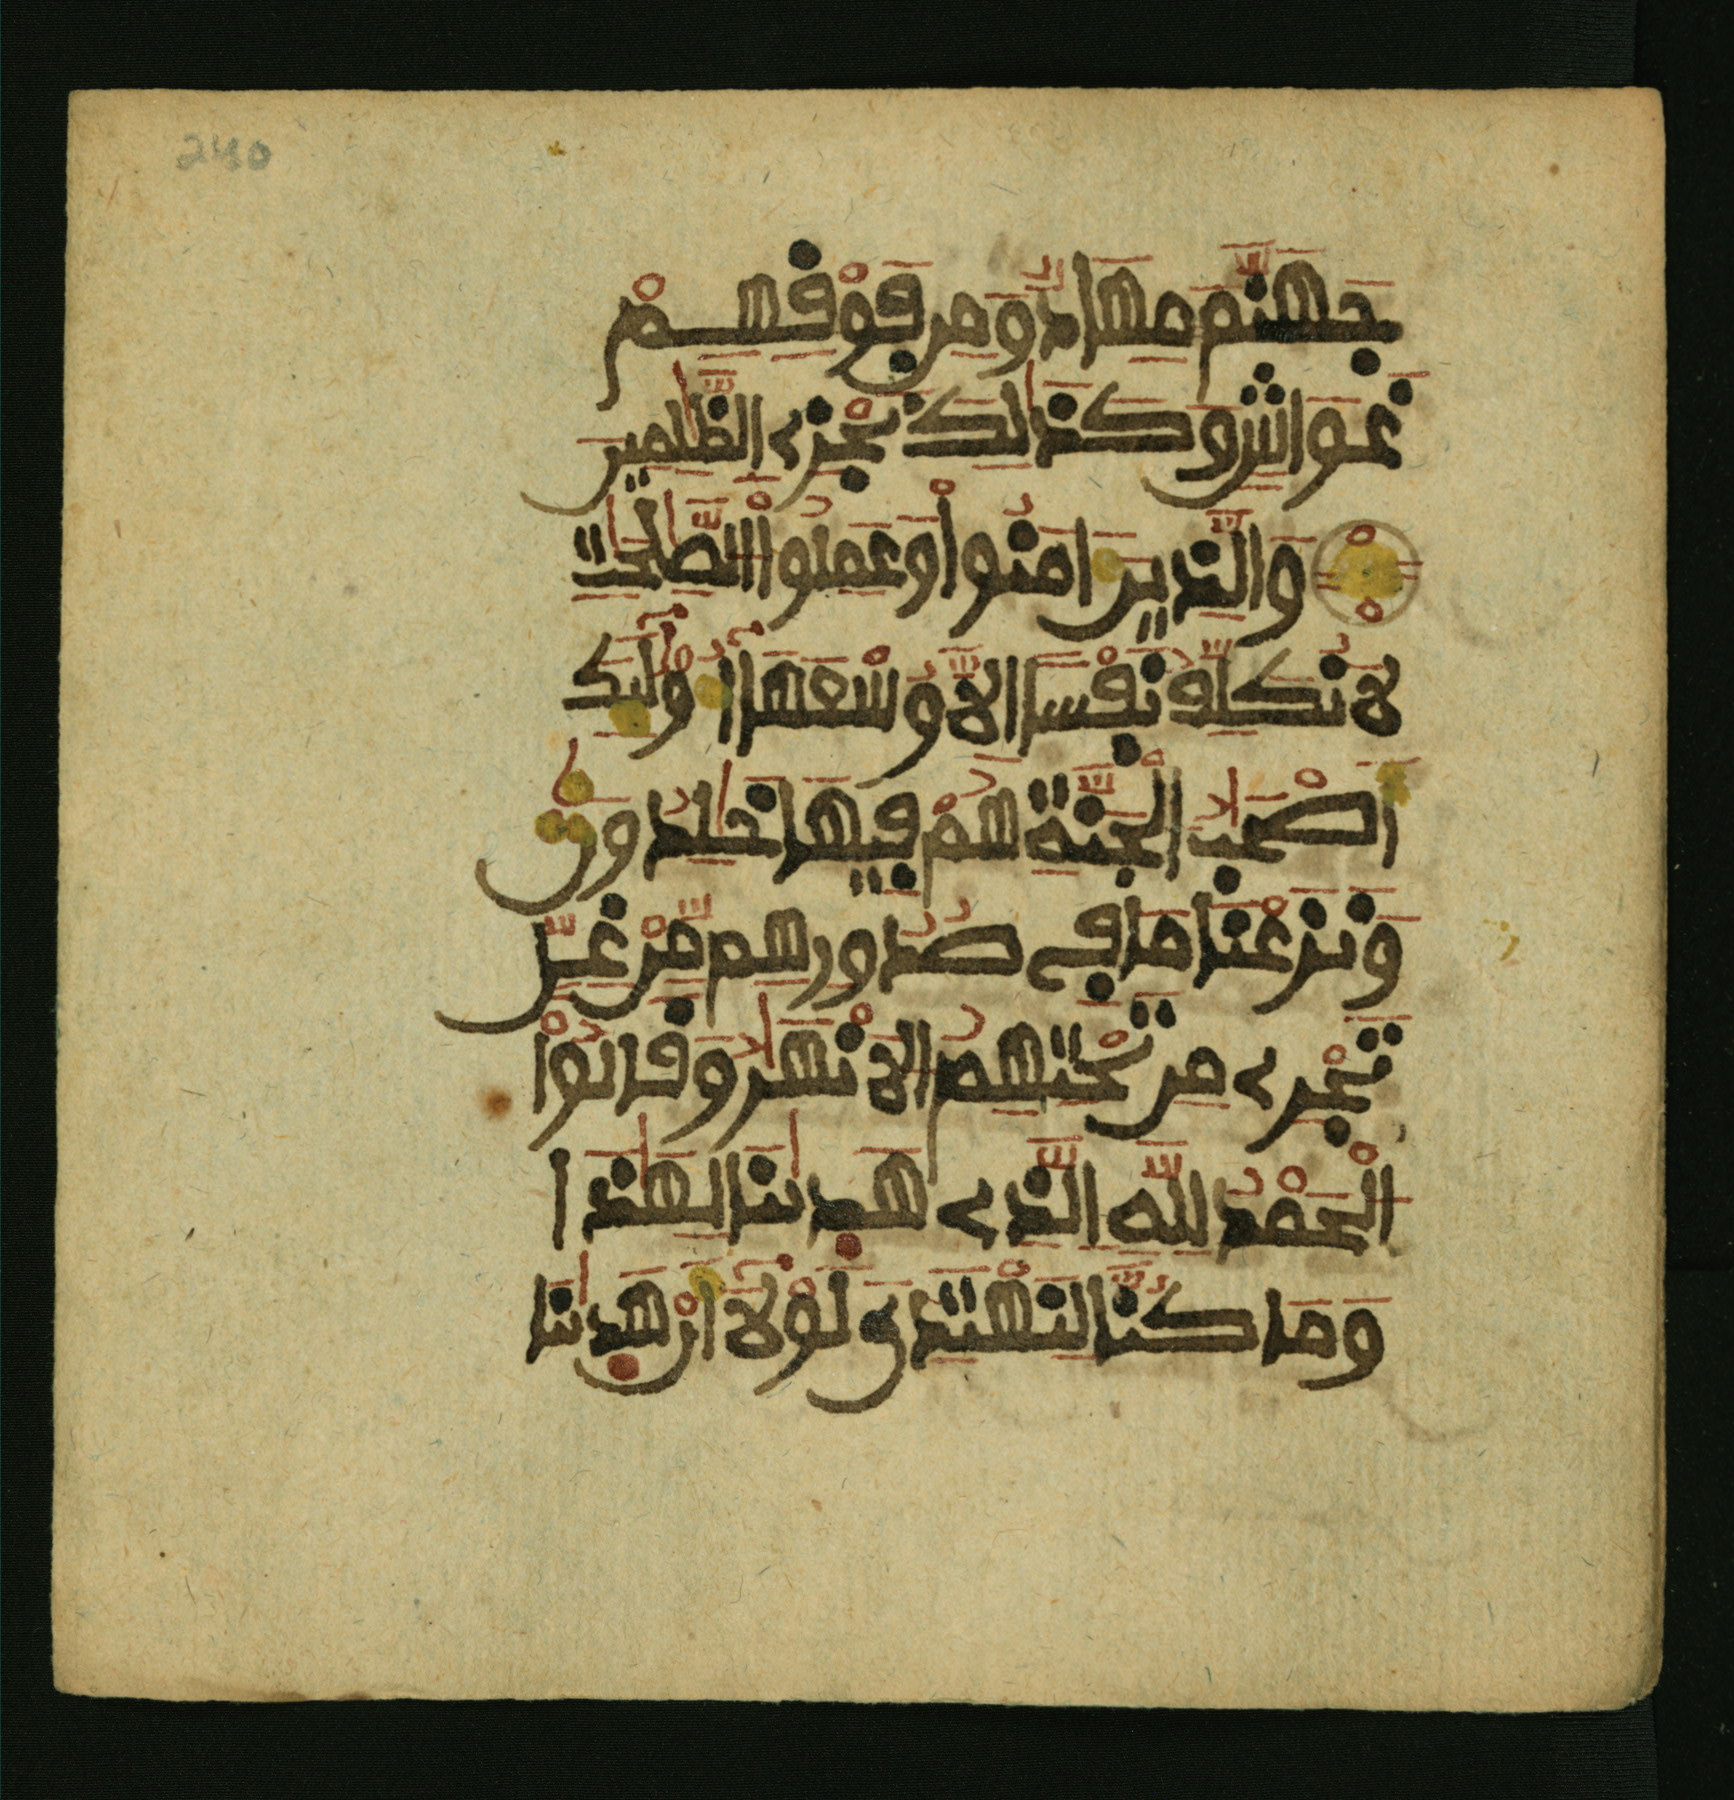 240
جَهَنَّمَ مِهَادٌ وَمِن فَوْقِهِمْ
غَوَاشٍ وَكَذَٰلِكَ نَجْزِي الظَّٰلِمِينَ
وَالَّذِينَ ءَامَنُواْ وَعَمِلُواْ الصَّٰلِحَٰتِ
لَا نُكَلِّفُ نَفْسًا إِلَّا وُسْعَهَا أُوْلَٰٓئِكَ
أَصْحَٰبُ الْجَنَّةِ هُمْ فِيهَا خَٰلِدُونَ
وَنَزَعْنَا مَا فِي صُدُورِهِم مِّنْ غِلٍّ
تَجْرِي مِن تَحْتِهِمُ الْأَنْهَٰرُ وَقَالُواْ
الْحَمْدُ لِلَّهِ الَّذِي هَدَىٰنَا لِهَٰذَا
وَمَا كُنَّا لِنَهْتَدِيَ لَوْلَآ أَنْ هَدَىٰنَا